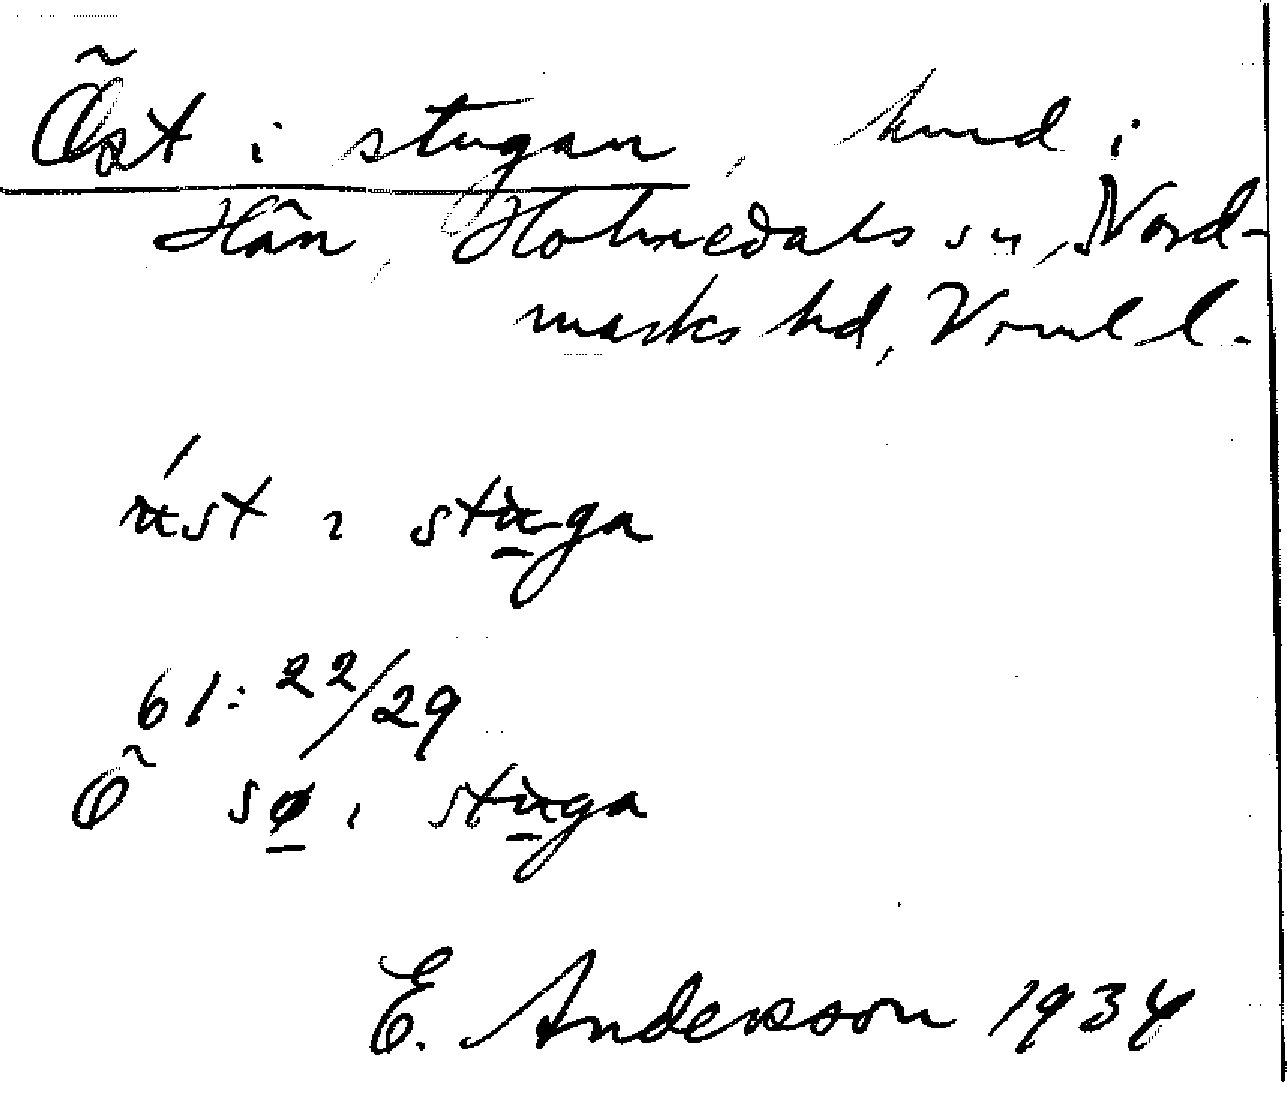 Öst i stugan, hmd i
Hån, Holmedals sn, Nord-
marks hd, Vrml l.
úst ı stu̲ga
61: 22/29
Õ sø̲ ı stu̲ga
E. Andersson 1934